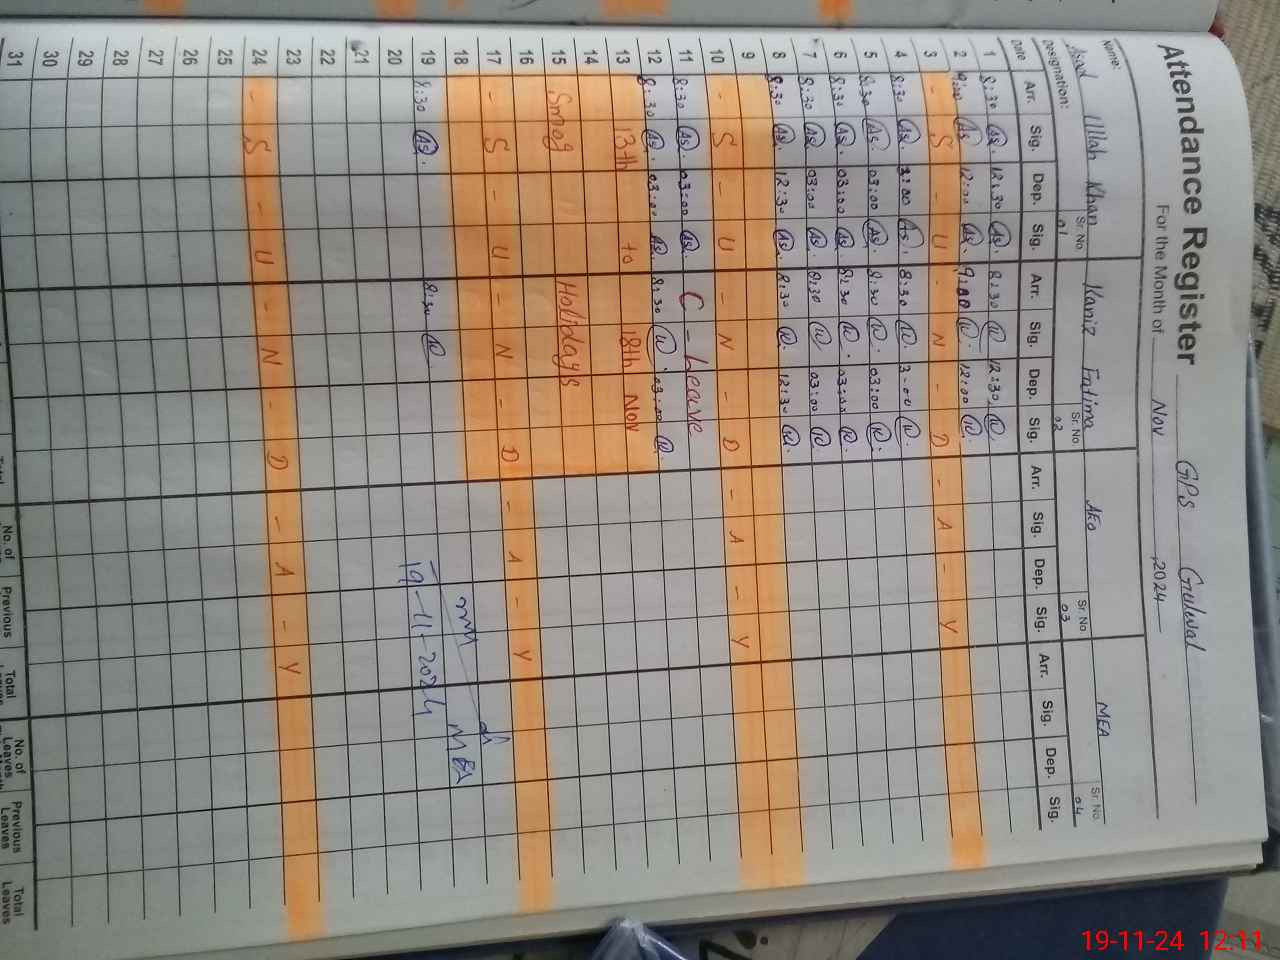 Attendance Register GPS Gulwal
For the Month of Nov ,2024
Name: Sr. No. 01 Sr. No. 02 Sr. No. 03 Sr. No. 04
Asad Ullah Khan Kaniz Fatima AEO MEA
Designation:
Date Arr. Sig. Dep. Sig. Arr. Sig. Dep. Sig. Arr. Sig. Dep. Sig. Arr. Sig. Dep. Sig.
1 8:30 As. 12:30 As. 8:30 12:30
2 9:00 As 12:00 As. 9:00 12:00
3 - S - U - N - D - A - Y
4 8:30 As. 3:00 As. 8:30 3-00
5 8:30 As. 03:00 As. 8:30 03:00
6 8:30 As. 03:00 As. 8:30 03:00
7 8:30 As. 03:00 As. 8:30 03:00
8 8:30 As. 12:30 As. 8:30 12:30
9
10 - S - U - N - D - A - Y
11 8:30 As. 03:00 As. C - Leave
12 8:30 As. 03:00 As. 8:30 03:00
13 13th to 18th Nov
14
15 Smog Holidays
16
17 - S - U - N - D - A - Y
18
19 8:30 As. 8:30
MEA
19-11-2024
20
21
22
23
24 - S - U - N - D - A - Y
25
26
27
28
29
30
31
Total No. of Previous Total No. of Previous Total
Leaves Leaves Leaves Leaves
19-11-24 12:11